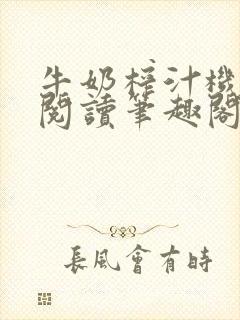 牛奶榨汁機
閱讀筆趣閣
長風會有時